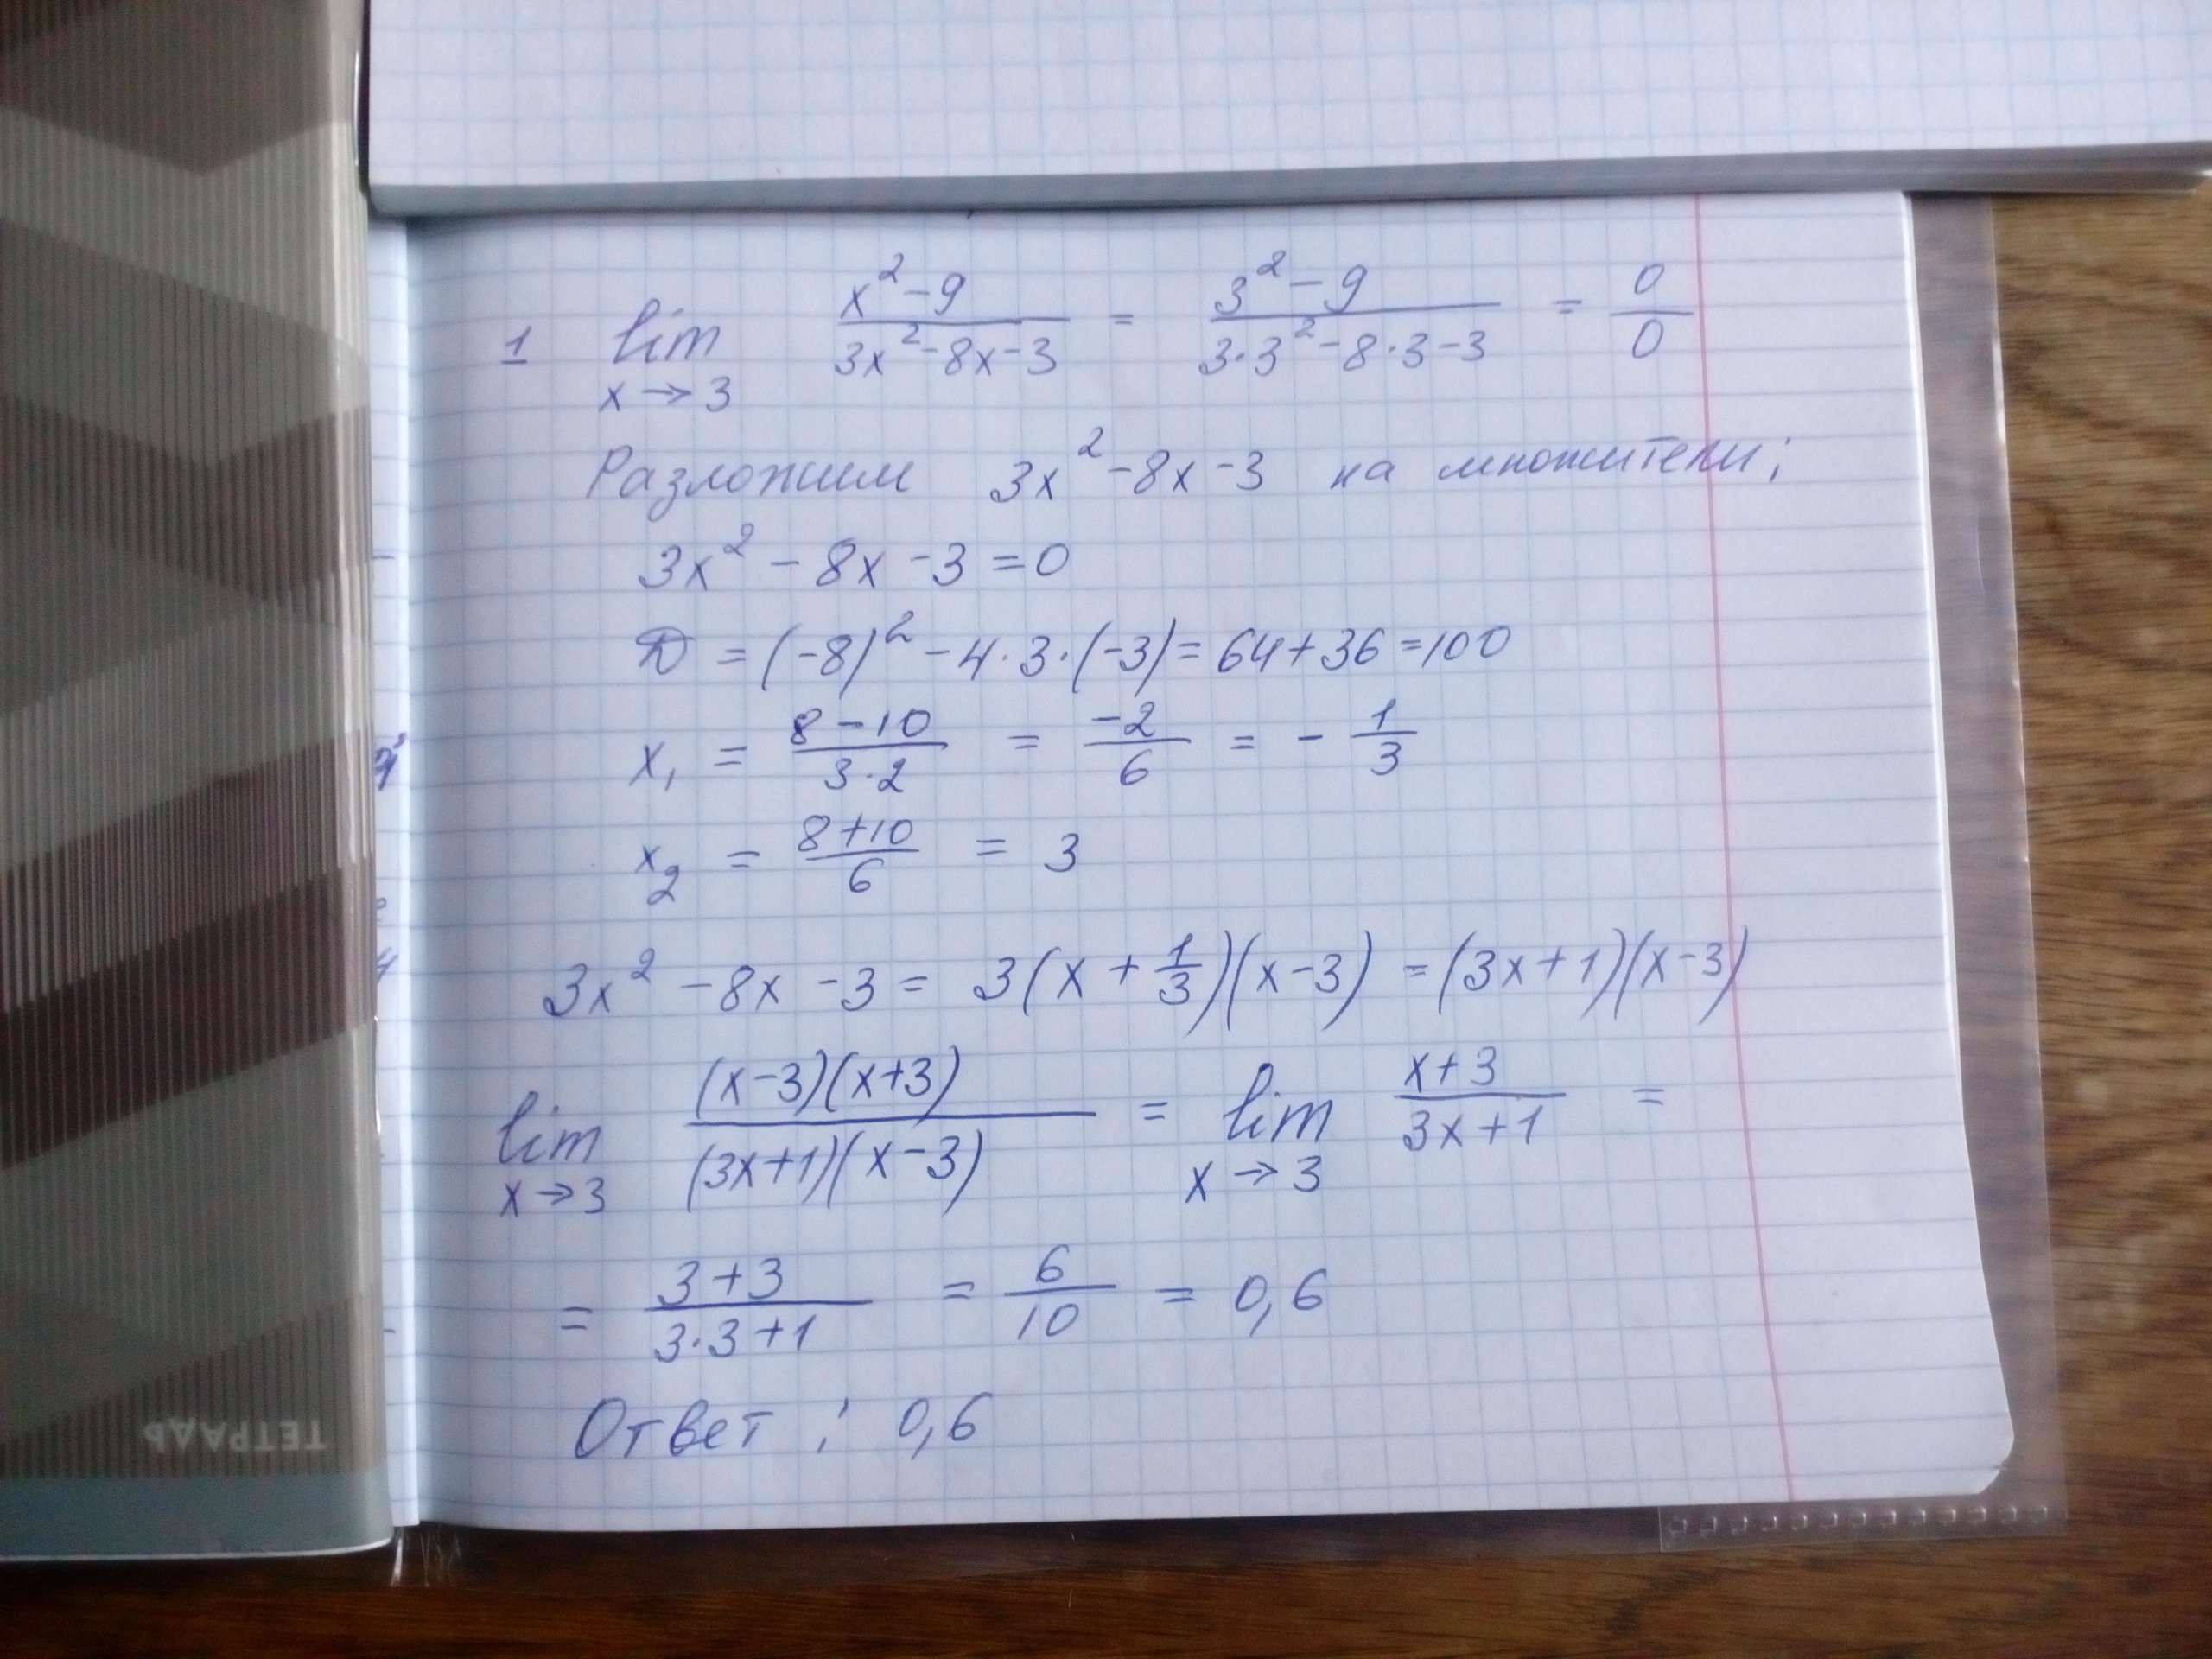 1 lim x→3 (x²-9)/(3x²-8x-3) = (3²-9)/(3·3²-8·3-3) = 0/0
Разложим 3x²-8x-3 на множители;
3x²-8x-3=0
D = (-8)²-4·3·(-3)=64+36=100
x₁ = (8-10)/(3·2) = -2/6 = -1/3
x₂ = (8+10)/6 = 3
3x²-8x-3= 3(x+1/3)(x-3) =(3x+1)(x-3)
lim x→3 ((x-3)(x+3))/((3x+1)(x-3)) = lim x→3 (x+3)/(3x+1) =
= (3+3)/(3·3+1) = 6/10 = 0,6
Ответ : 0,6
ТЕТРАДЬ